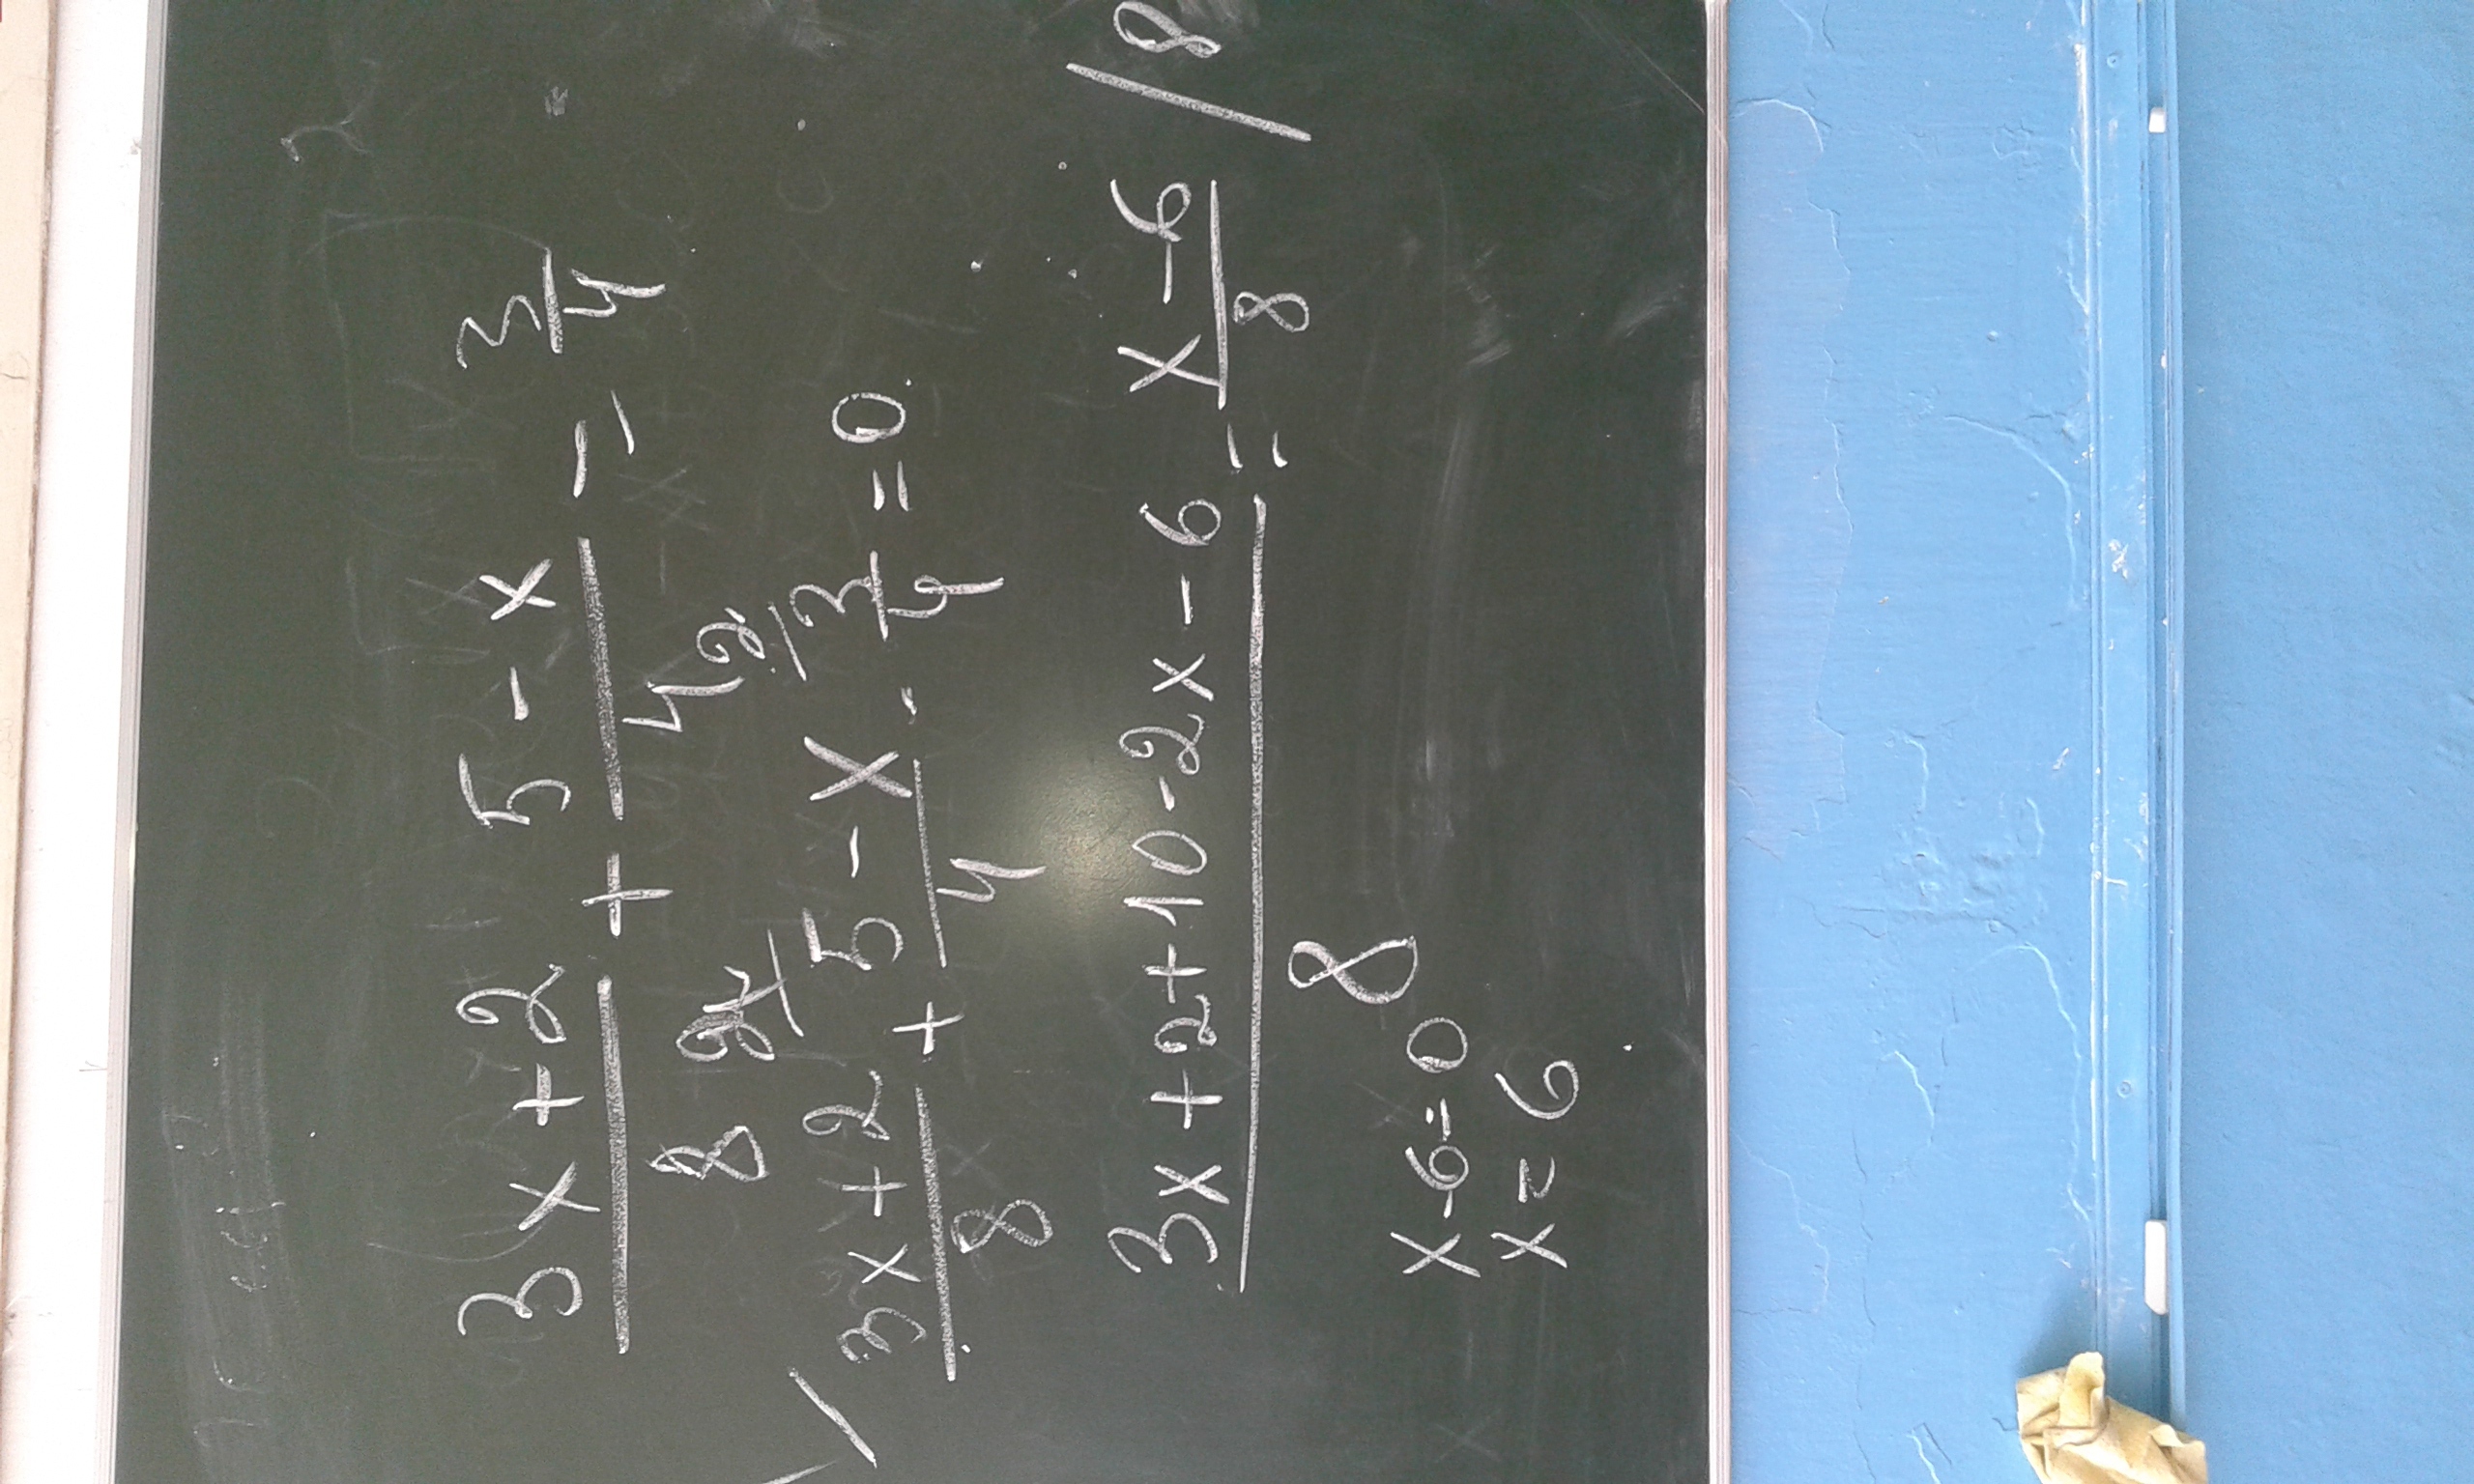 (3x + 2)/8 + (5 - x)/4 = 3/4
1/ (3x + 2)/8 + 2/ (5 - x)/4 - 2/ 3/4 = 0
(3x + 2 + 10 - 2x - 6)/8 = (x - 6)/8 / 8
x - 6 = 0
x = 6